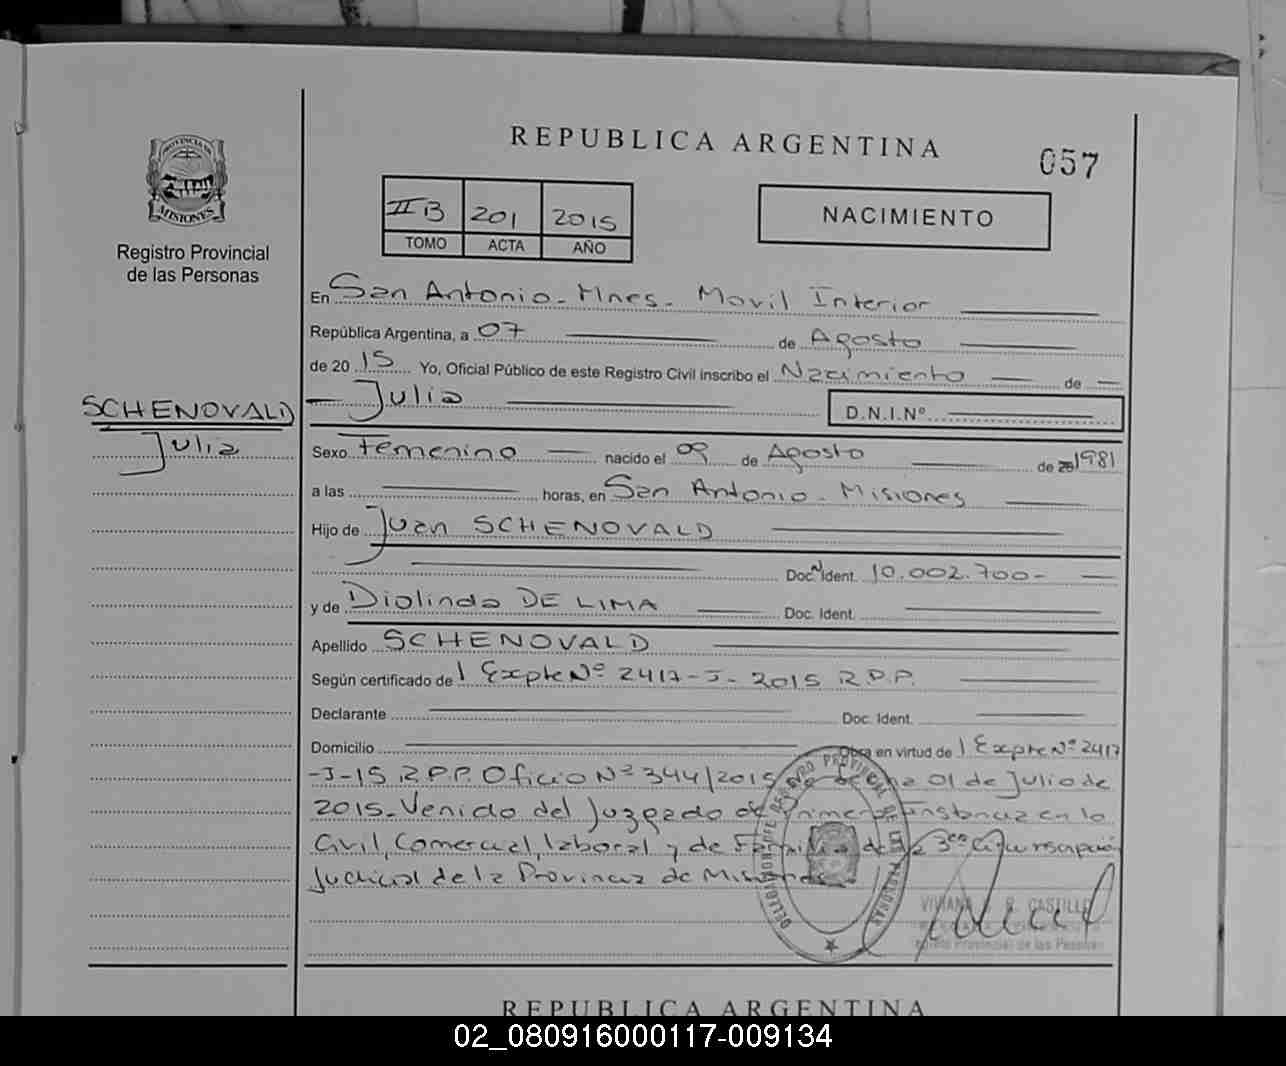 REPUBLICA ARGENTINA
057
PROVINCIA DE
MISIONES
Registro Provincial
de las Personas
II B 201 2015
TOMO ACTA AÑO
NACIMIENTO
En San Antonio - Mnes - Movil Interior
República Argentina, a 07 de Agosto
de 20 15 Yo, Oficial Público de este Registro Civil inscribo el Nacimiento de
Julia
D.N.I.Nº
SCHENOVALD
Julia
Sexo Femenino nacido el 09 de Agosto de 20 1981
a las horas, en San Antonio - Misiones
Hijo de Juan SCHENOVALD
Doc. Ident. 10.002.700-
y de Diolinda DE LIMA Doc. Ident.
Apellido SCHENOVALD
Según certificado de | Expte Nº 2417-J-2015 R.P.P.
Declarante Doc. Ident.
Domicilio Obra en virtud de | Expte Nº 2417
-J-15 R.P.P. Oficio Nº 344/2015 de 01 de Julio de
2015. Venido del Juzgado de Primera Instancia en lo
Civil, Comercial, Laboral y de Familia de la 3era Circunscripción
Judicial de la Provincia de Misiones
DELEGACION DEL REGISTRO PROVINCIAL DE LAS PERSONAS
VIVIANA R. CASTILLO
Registro Provincial de las Personas
REPUBLICA ARGENTINA
02_080916000117-009134